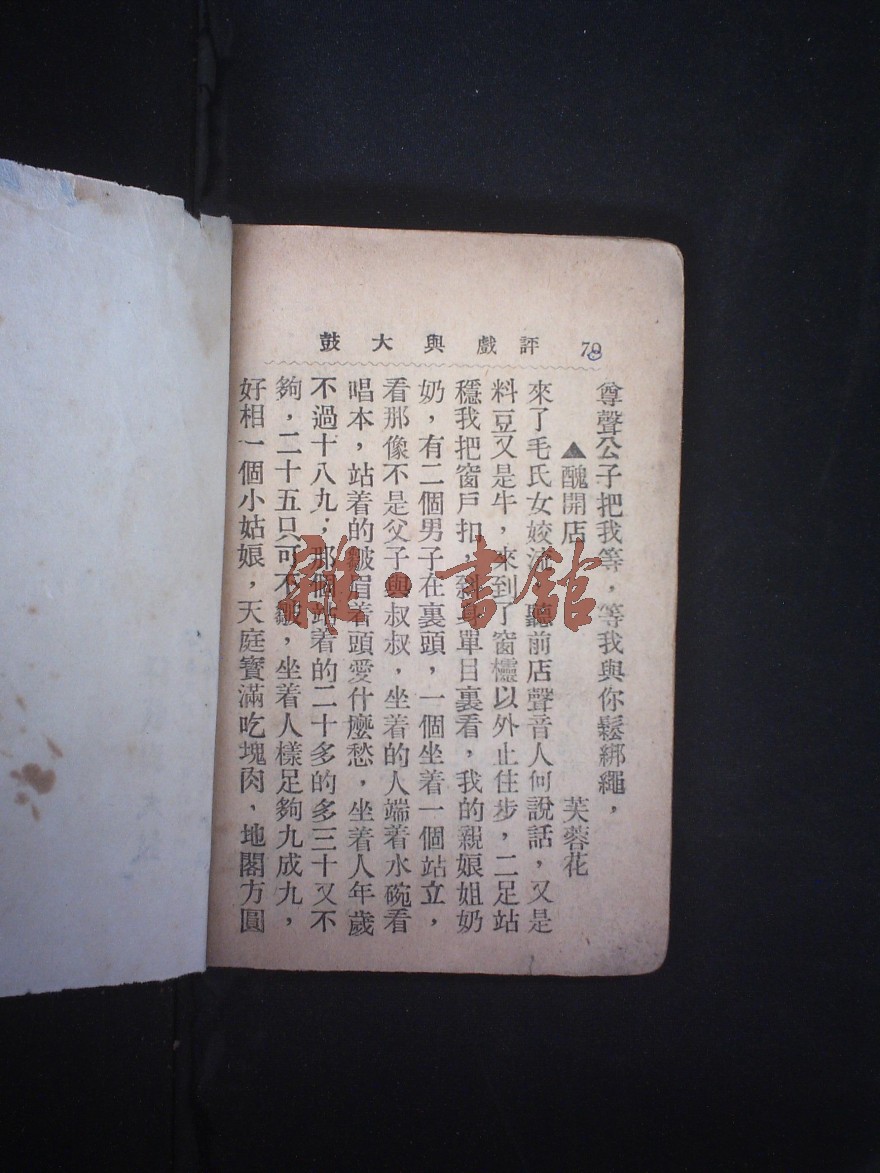 評戲與大鼓 79
尊聲公子把我等，等我與你鬆綁繩，
▲醜開店 芙蓉花
來了毛氏女姣流，聽前店聲音人何說話，又是
料豆又是牛，來到了窗欞以外止住步，二足站
穩我把窗戶扣，斜身單目裏看，我的親娘姐奶
奶，有二個男子在裏頭，一個坐着一個站立，
看那像不是父子與叔叔，坐着的人端着水碗看
唱本，站着的皺眉着頭愛什麼愁，坐着人年歲
不過十八九；那個站着的二十多的多三十又不
夠，二十五只可不皺，坐着人樣足夠九成九，
好相一個小姑娘，天庭寳滿吃塊肉、地閣方圓
雜·書館